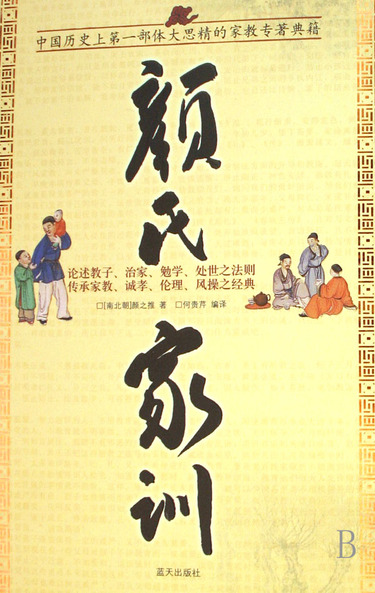 中国历史上第一部体大思精的家教专著典籍
颜氏家训
论述教子、治家、勉学、处世之法则
传承家教、诚孝、伦理、风操之经典
□[南北朝]颜之推 著 □何贵芹 编译
蓝天出版社
B